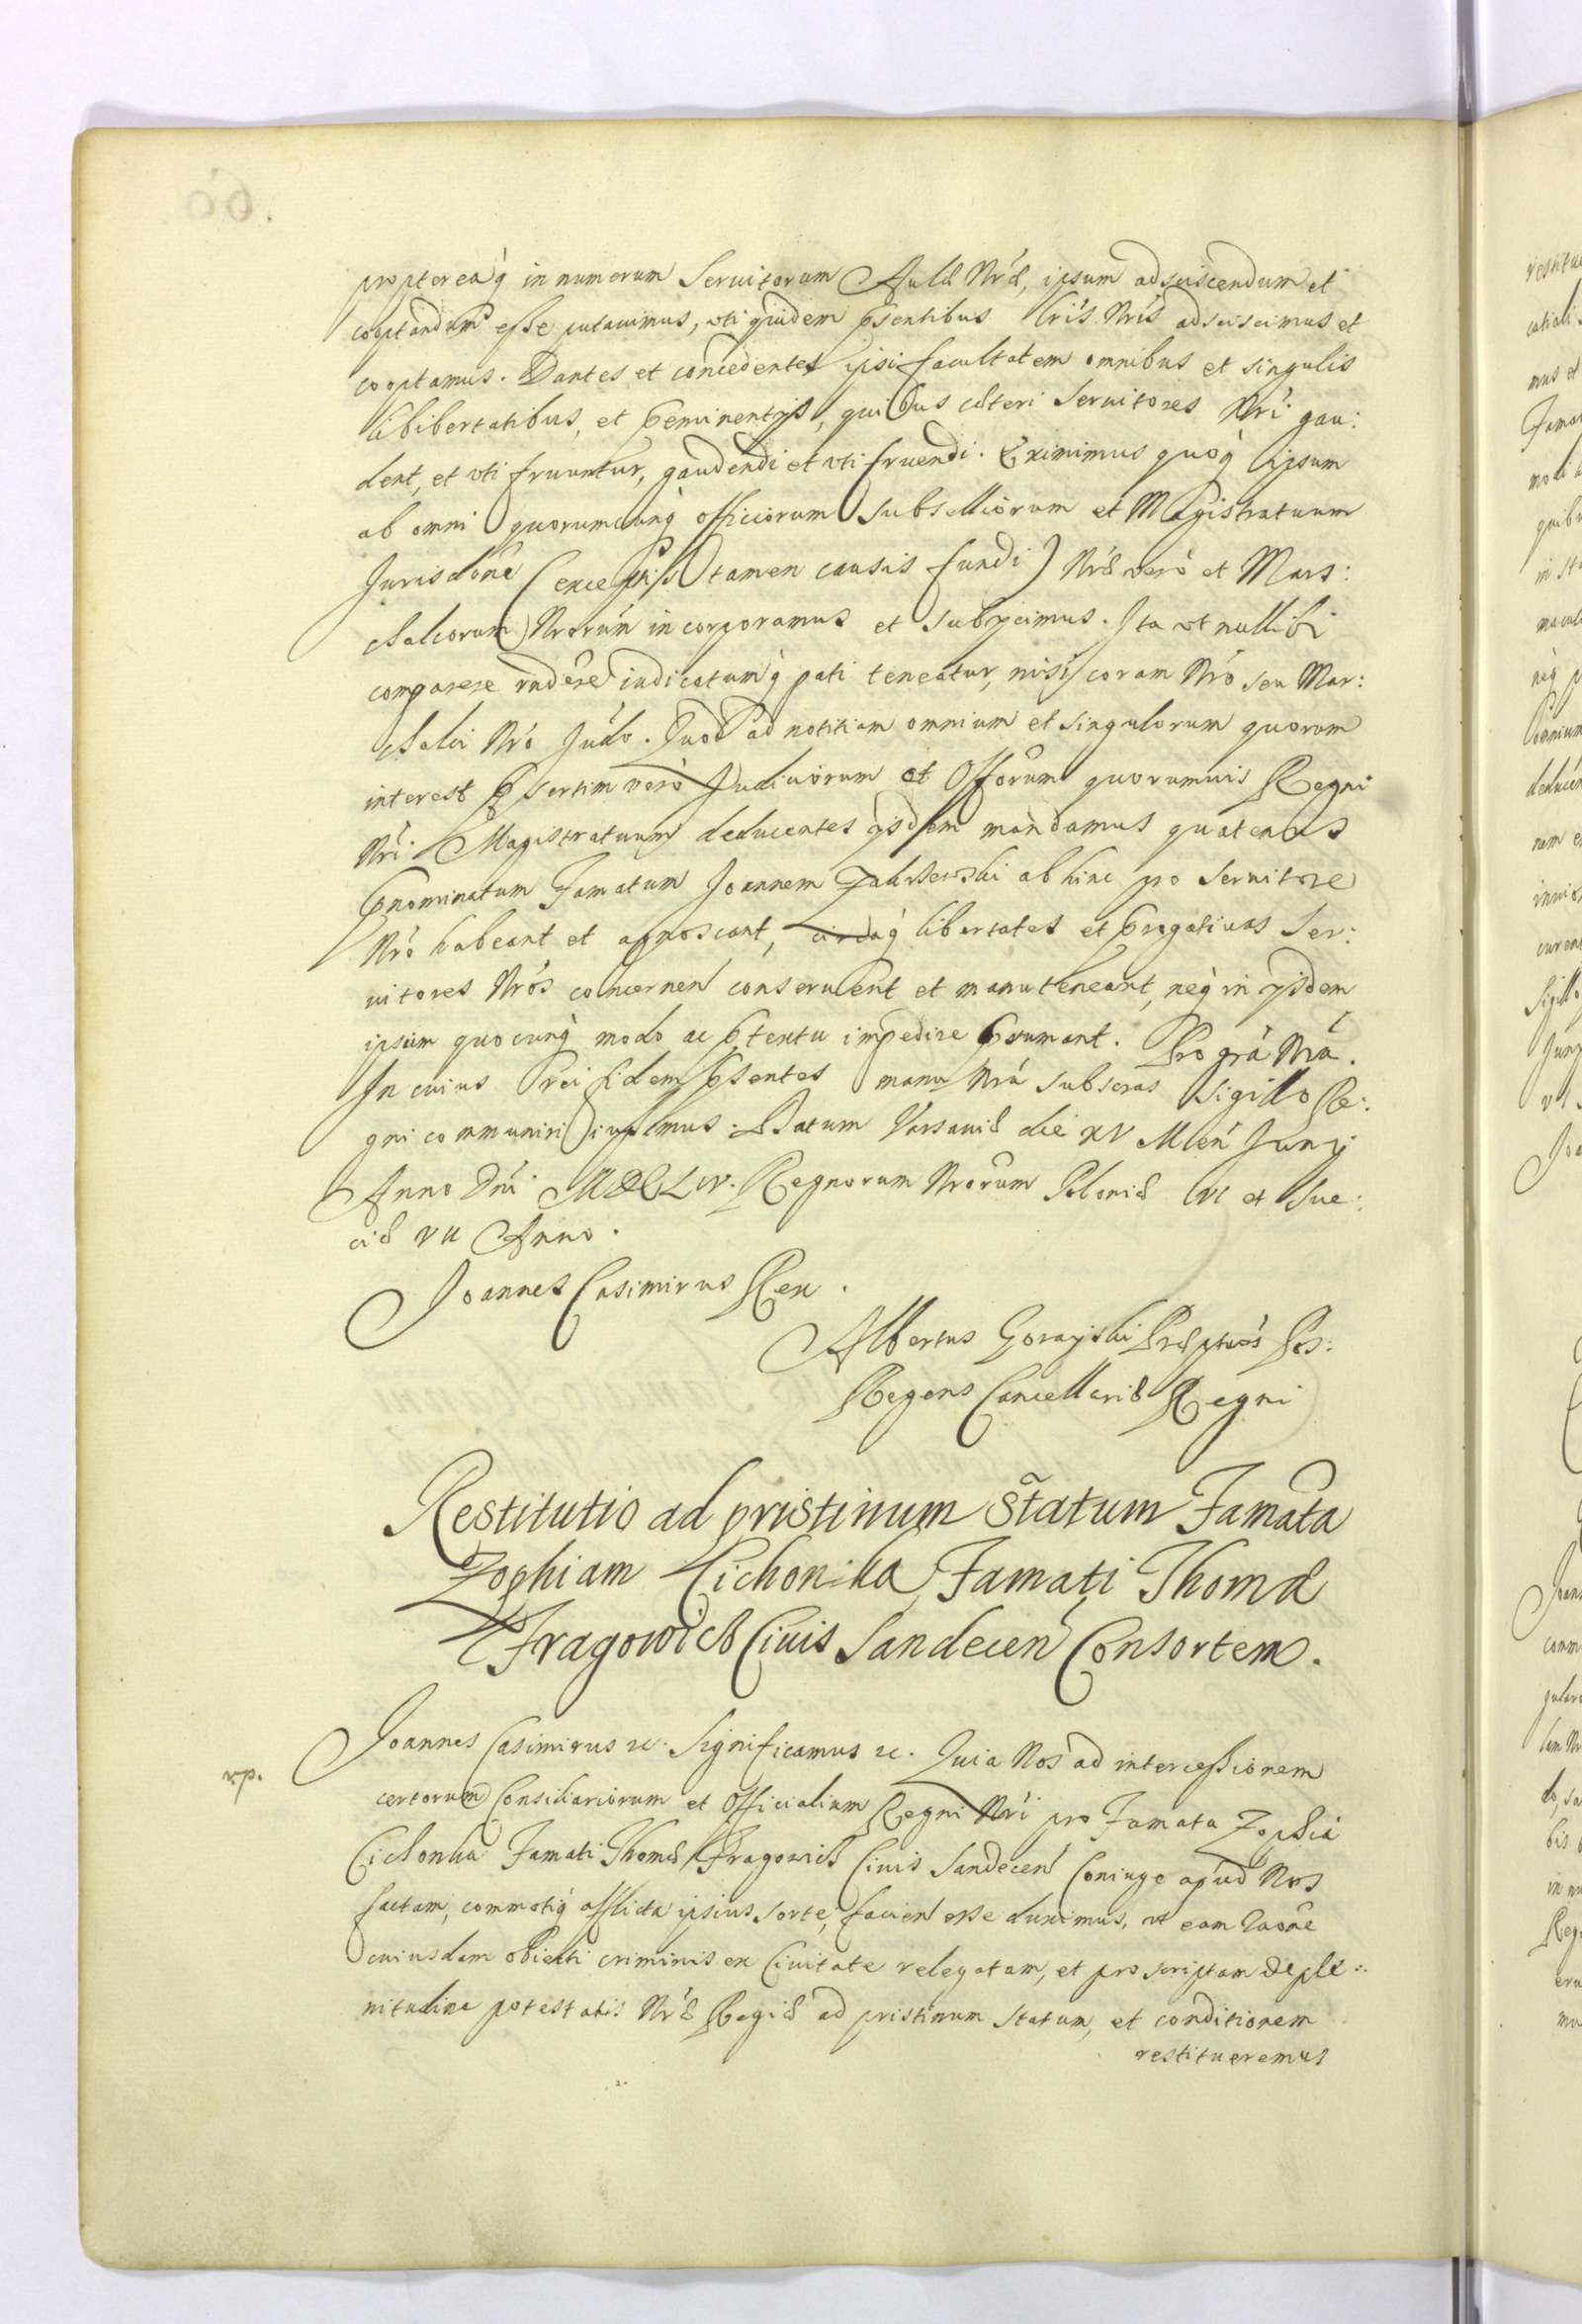 proptereaq́ in numerum Seruitorum Aulæ Nr̃æ, ipsum adsciscendum et
cooptandum esse putauimus, vti quidem psentibus Lr̃is Nr̃is adsciscimus et
cooptamus. Dantes et concedentes ipsi facultatem omnibus et singulis
libibertatibus, et peminentijs, quibus cæteri Seruitores Nr̃i gau:
dent, et vti fruuntur, gaudendi et vti fruendi. Eximimus quoq́ ipsum
ab omni quorumcunq́ officiorum Subselliorum et Magistratuum
Jurisdõne (exceptis tamen causis fundi) Nr̃æ verò et Mars:
chalcorum Nrorum incorporamus et subijcimus. Ita vt nullibi
comparere rndẽre iudicatumq́ pati teneatur, nisi coram Nrõ seu Mar:
chalci Nrõ Judõ. Quod ad notitiam omnium et singulorum quorum
interest psertim verò Judiciorum et Offõrum quorumuis Regni
Nr̃i Magistratuum deducentes ijsdem mandamus quatenus
pnominatum Famatum Joannem Zakrzewski abhinc pro Seruitore
Nrõ habeant et agnoscant, circaq́ libertates et prgatiuas Ser:
uitores Nrõs concernen̄ conseruent et manuteneant, neq́ in ijsdem
ipsum quocunq́ modo ac ptextu impedire psumant. Pro gr̃a Nrã.
In cuius rei fidem psentes manu Nrã subscras Sigillo Re:
gni communiri iussimus. Datum Varsauiæ die XV Mẽn Junij
Anno Dni MDCLIV. Regnorum Nrorum Poloniæ VI et Sue:
ciæ VII Anno.
Joannes Casimirus Rex.
Albertus Gorayski Præptus Pos:
Regens Cancellariæ Regni
Restitutio ad pristinum Statum Famata
Zophiam Cichonka, Famati Thomæ
Fragowich Ciuis Sandecen̄ Consortem.
Joannes Casimirus &c. Significamus &c. Quia Nos ad intercessionem
r.p.
certorum Consiliariorum et Officialium Regni Nr̃i pro Famata Zophia
Cichonka Famati Thomæ Fragowich Ciuis Sandecen̄ Coniuge apud Nos
factam, commotiq́ afflicta ipsius sorte, facien̄ esse duximus, vt eam raõne
cuiusdam obiecti criminis ex Ciuitate relegatam, et proscriptam de ple:
nitudine potestatis Nr̃æ Regiæ ad pristinum statum, et conditionem
restitueremus